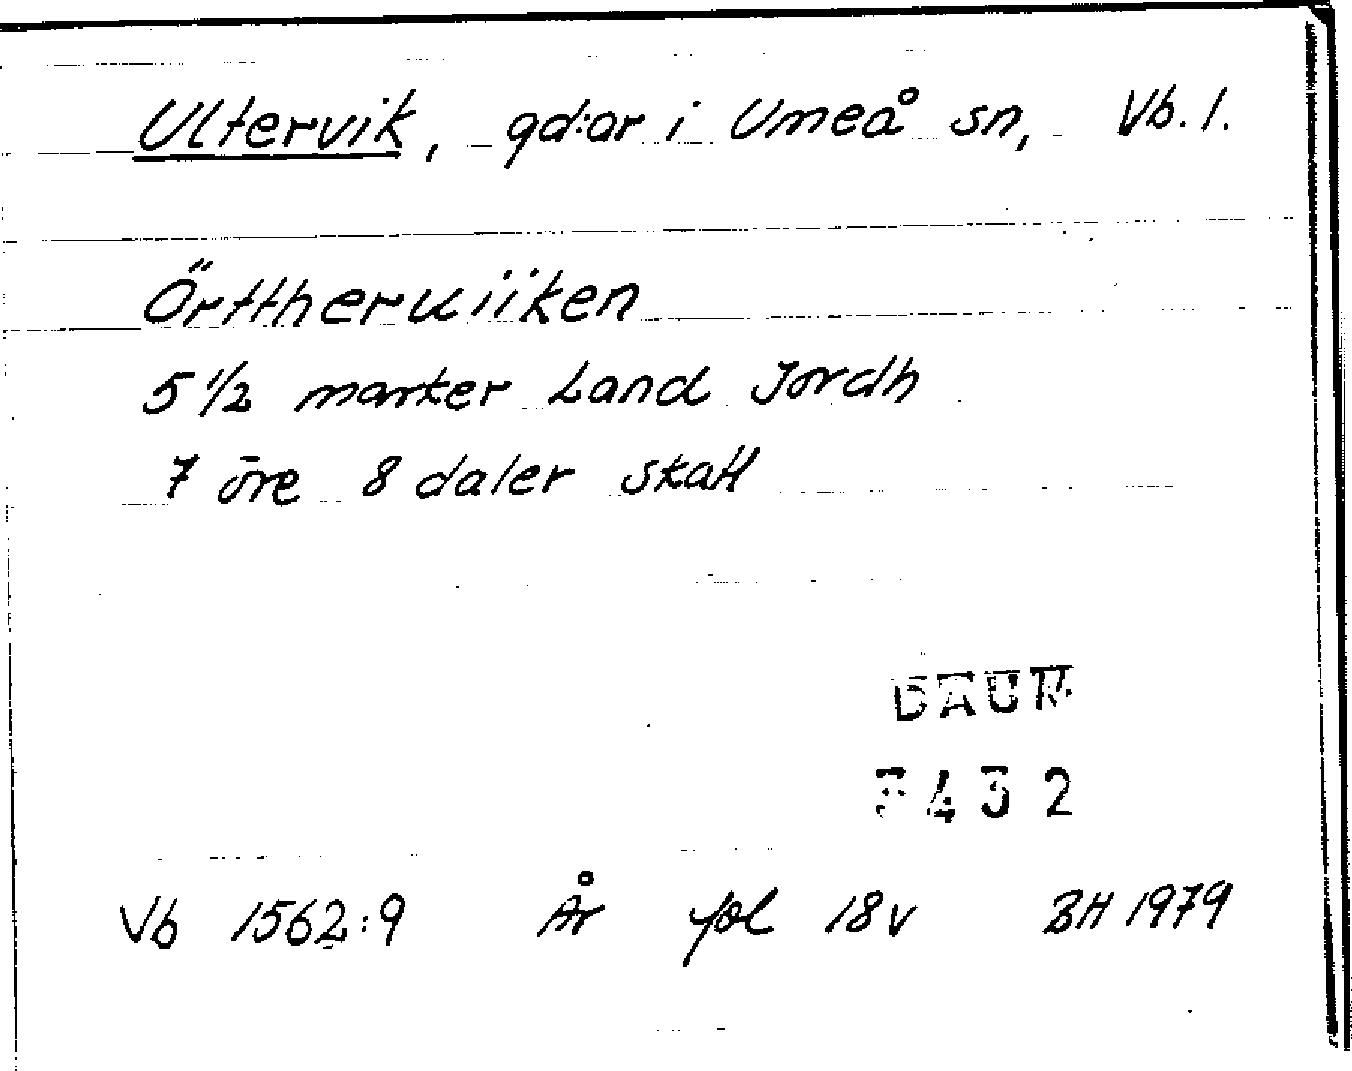 Ultervik, gd:ar i Umeå sn, Vb. l.
Örttheruiiken
5 1/2 marker Land Jordh
7 öre 8 daler skatt
DAUM
3432
Vb 1562:9 År fol 18v BH 1979